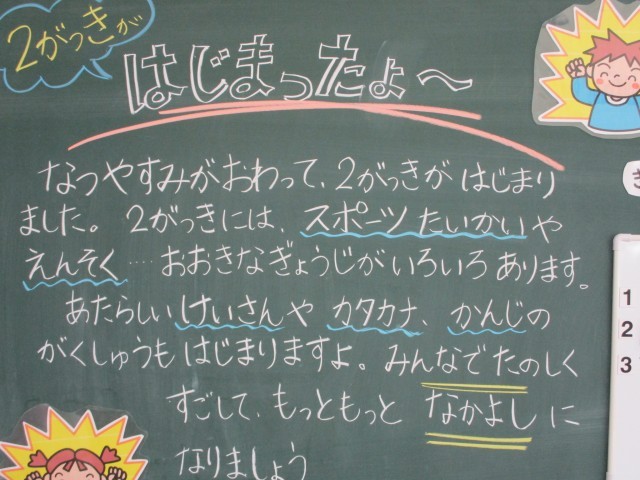 2がっきが
はじまったよ〜
なつやすみがおわって、2がっきが はじまり
ました。 2がっきには、スポーツ たいかいや
えんそく……おおきなぎょうじがいろいろ あります。
あたらしい けいさんや カタカナ、かんじの
がくしゅうも はじまりますよ。みんなで たのしく
すごして、もっともっと なかよしに
なりましょう
1
2
3